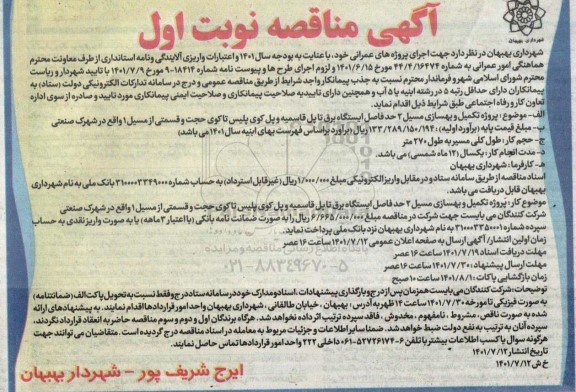 آگهی مناقصه نوبت اول
شهرداری بهبهان
شهرداری بهبهان در نظر دارد جهت اجرای پروژه های عمرانی خود، با عنایت به بودجه سال ۱۴۰۱ و اعتبارات واریزی آلایندگی ونامه استانداری از طرف معاونت محترم
هماهنگی امور عمرانی به شماره ۴۴/۴/۱۶۴۷۴ مورخ ۱۴۰۱/۶/۱۵ و لزوم اجرای طرح ها و پیوست نامه شماره ۱۸۴۱۴-۹ مورخ ۱۴۰۱/۷/۹ با تایید شهردار و ریاست
محترم شورای اسلامی شهر و فرماندار محترم نسبت به جذب پیمانکار واجد شرایط از طریق مناقصه عمومی و درج در سامانه تدارکات الکترونیکی دولت (ستاد) به
پیمانکاران دارای حداقل رتبه ۵ در رشته ابنیه یا ۵ آب و همچنین دارای تاییدیه صلاحیت پیمانکاری و صلاحیت ایمنی پیمانکاری مورد تایید و صادره از سوی اداره
تعاون کار و رفاه اجتماعی طبق شرایط ذیل اقدام نماید.
الف- موضوع : پروژه تکمیل و بهسازی مسیل ۲ حد فاصل ایستگاه برق تا پل قاسمیه و پل کوی پلیس تا کوی حجت و قسمتی از مسیل ۱ واقع در شهرک صنعتی
ب- مبلغ قیمت پایه (برآورد اولیه): ۱۳۳/۲۸۹/۱۵۰/۱۹۴ ریال (برآورد براساس فهرست بهای ابنیه سال ۱۴۰۱ می باشد)
ج- حجم کار: طول کلی مسیر به طول ۲۷۰ متر
د- مدت انجام کار: یکسال (۱۲ ماه شمسی) می باشد.
ه- کارفرما: شهرداری بهبهان
اسناد مناقصه از طریق سامانه ستاد و در مقابل واریز الکترونیکی مبلغ ۱/۰۰۰/۰۰۰ ریال (غیر قابل استرداد) به حساب شماره ۳۱۰۰۰۰۳۳۴۹۰۰۰ بانک ملی به نام شهرداری
بهبهان قابل دریافت می باشد.
موضوع کار: پروژه تکمیل و بهسازی مسیل ۲ حد فاصل ایستگاه برق تا پل قاسمیه و پل کوی پلیس تا کوی حجت و قسمتی از مسیل ۱ واقع در شهرک صنعتی
شرکت کنندگان می بایست جهت شرکت در مناقصه مبلغ ۶/۶۶۵/۰۰۰/۰۰۰ ریال را به صورت ضمانت نامه بانکی (با اعتبار ۳ ماهه) یا به صورت واریز نقدی به حساب
سپرده شماره ۳۱۰۰۰۰۳۳۵۰۰۰۱ به نام شهرداری بهبهان نزد بانک ملی پرداخت نماید.
زمان اولین انتشار/ آگهی ارسال به صفحه اعلان عمومی ۱۴۰۱/۷/۱۲ ساعت ۱۶ عصر
مهلت دریافت اسناد ۱۴۰۱/۷/۱۹ ساعت ۱۶ عصر
مهلت ارسال پیشنهاد: ۱۴۰۱/۷/۳۰ ساعت ۱۶ عصر
زمان بازگشایی پاکات ۱۴۰۱/۸/۱ ساعت ۱۰ صبح
توضیحات: شرکت کنندگان می بایست همزمان پس از درج و بارگذاری پیشنهادات، اسناد و مدارک خود در سامانه ستاد درج و فقط نسبت به تحویل پاکت الف (ضمانتنامه)
به صورت فیزیکی تا مورخه ۱۴۰۱/۷/۳۰ ساعت ۱۴ ظهر به آدرس: بهبهان، خیابان طالقانی، شهرداری بهبهان واحد امور قراردادها اقدام نمایند. به پیشنهادهای ارائه
شده به صورت ناقص، مشروط، نامفهوم، مخدوش، فاقد سپرده ترتیب اثر داده نخواهد شد. هرگاه برندگان اول و دوم و سوم مناقصه حاضر به انعقاد قرارداد نگردند،
سپرده آنان به ترتیب به نفع دولت ضبط خواهد شد. ضمنا سایر اطلاعات و جزئیات مربوط به معامله در اسناد مناقصه درج گردیده است. متقاضیان می توانند جهت
هرگونه سوال یا کسب اطلاعات بیشتر با تلفن ۶-۰۶۱۵۲۷۲۶۱۷۴ داخلی ۲۲۲ واحد امور قراردادها تماس حاصل نمایند.
تاریخ انتشار ۱۴۰۱/۷/۱۲
خ ش ۱۴۰۱/۷/۱۲
ایرج شریف پور - شهردار بهبهان
۰۲۱-۸۸۳۴۹۶۷۰-۵